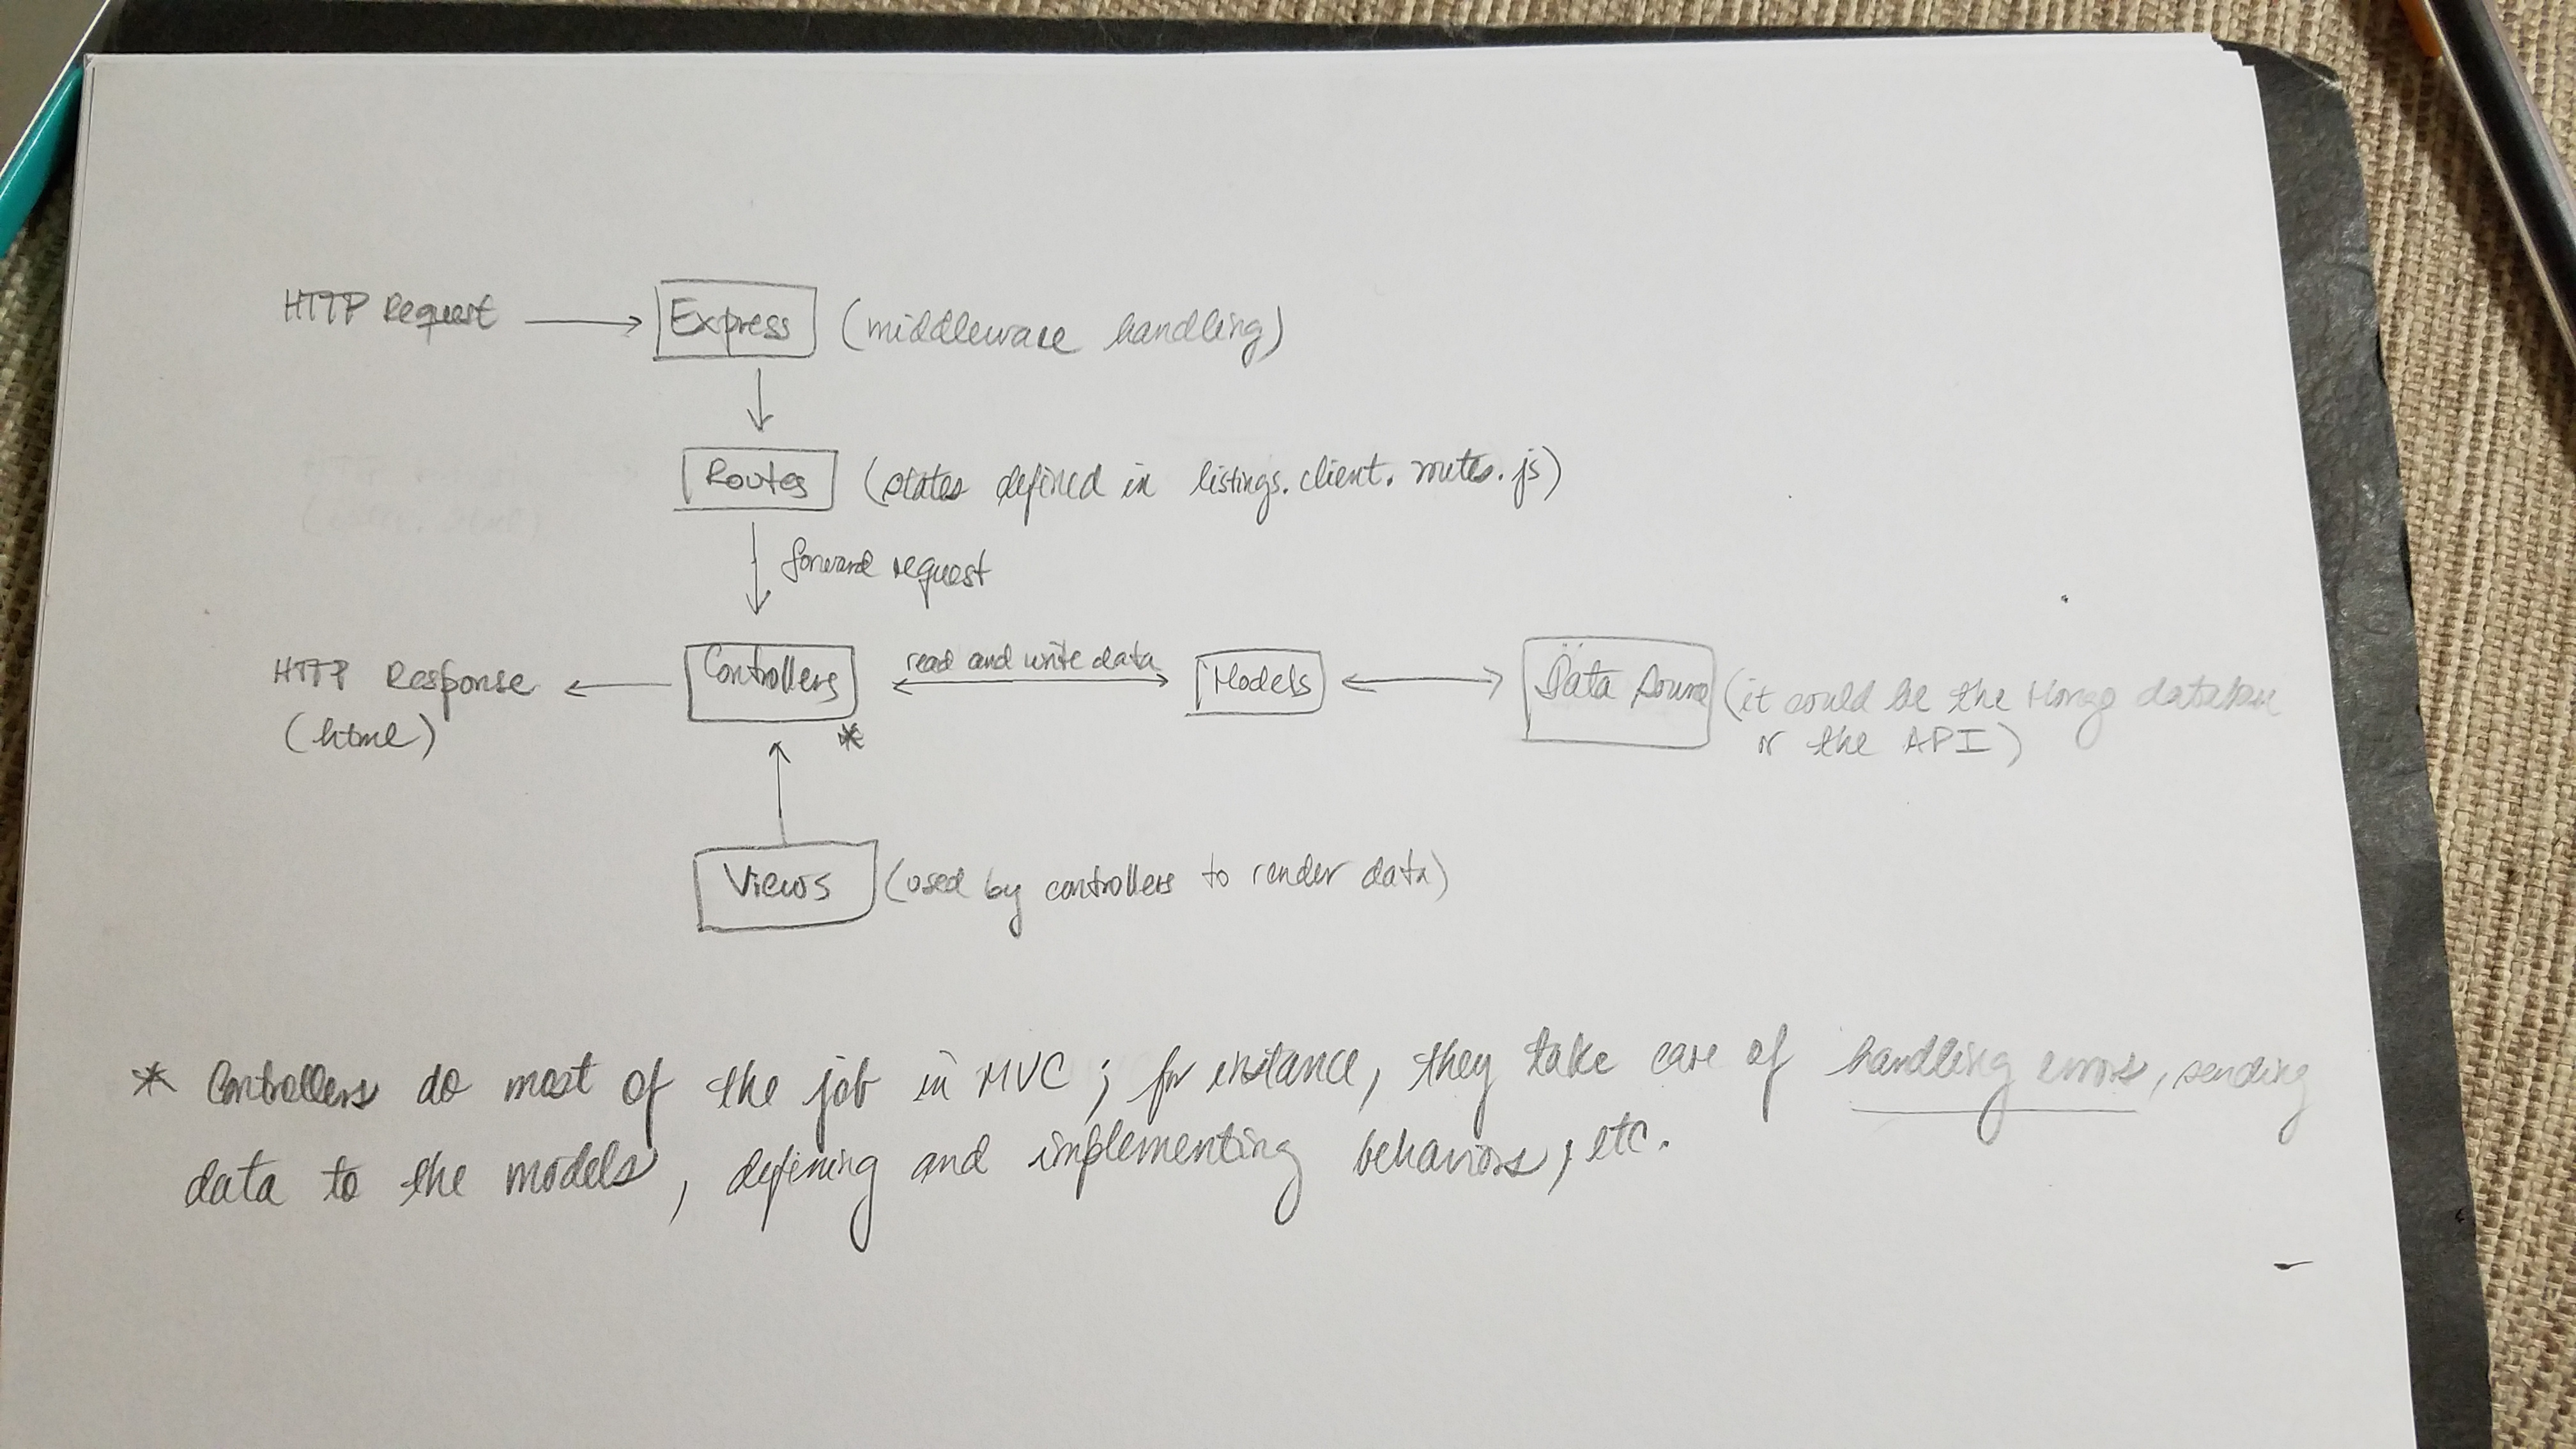 HTTP Request
Express (middleware handling)
Routes (states defined in listings.client.routes.js)
forward request
HTTP Response
(html)
Controllers
*
read and write data
Models
Data Source (it could be the Mongo database
or the API)
Views (used by controllers to render data)
* Controllers do most of the job in MVC; for instance, they take care of handling errors, sending
data to the models, defining and implementing behaviors, etc.